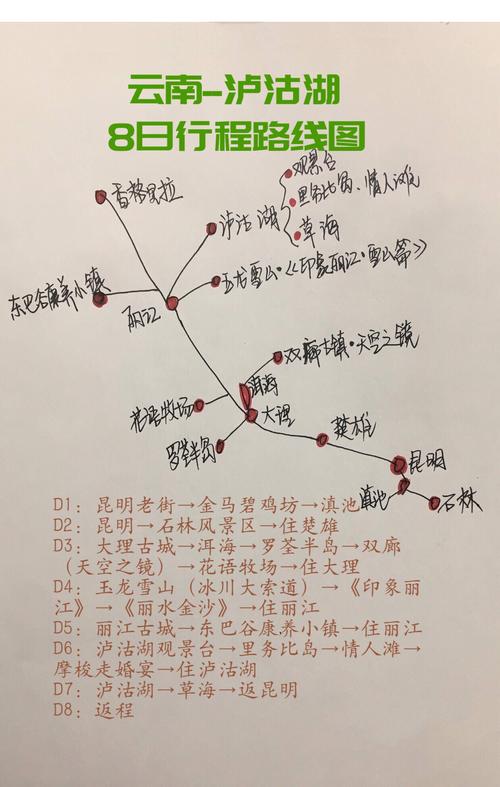 云南-泸沽湖
8日行程路线图
香格里拉
观景台
里务比岛、情人滩
泸沽湖
草海
玉龙雪山·《印象丽江·雪山篇》
东巴谷康养小镇
丽江
双廊古镇·天空之镜
洱海
花语牧场
大理
罗荃半岛
楚雄
昆明
滇池
石林
D1：昆明老街→金马碧鸡坊→滇池
D2：昆明→石林风景区→住楚雄
D3：大理古城→洱海→罗荃半岛→双廊
（天空之镜）→花语牧场→住大理
D4：玉龙雪山（冰川大索道）→《印象丽
江》→《丽水金沙》→住丽江
D5：丽江古城→东巴谷康养小镇→住丽江
D6：泸沽湖观景台→里务比岛→情人滩→
摩梭走婚宴→住泸沽湖
D7：泸沽湖→草海→返昆明
D8：返程